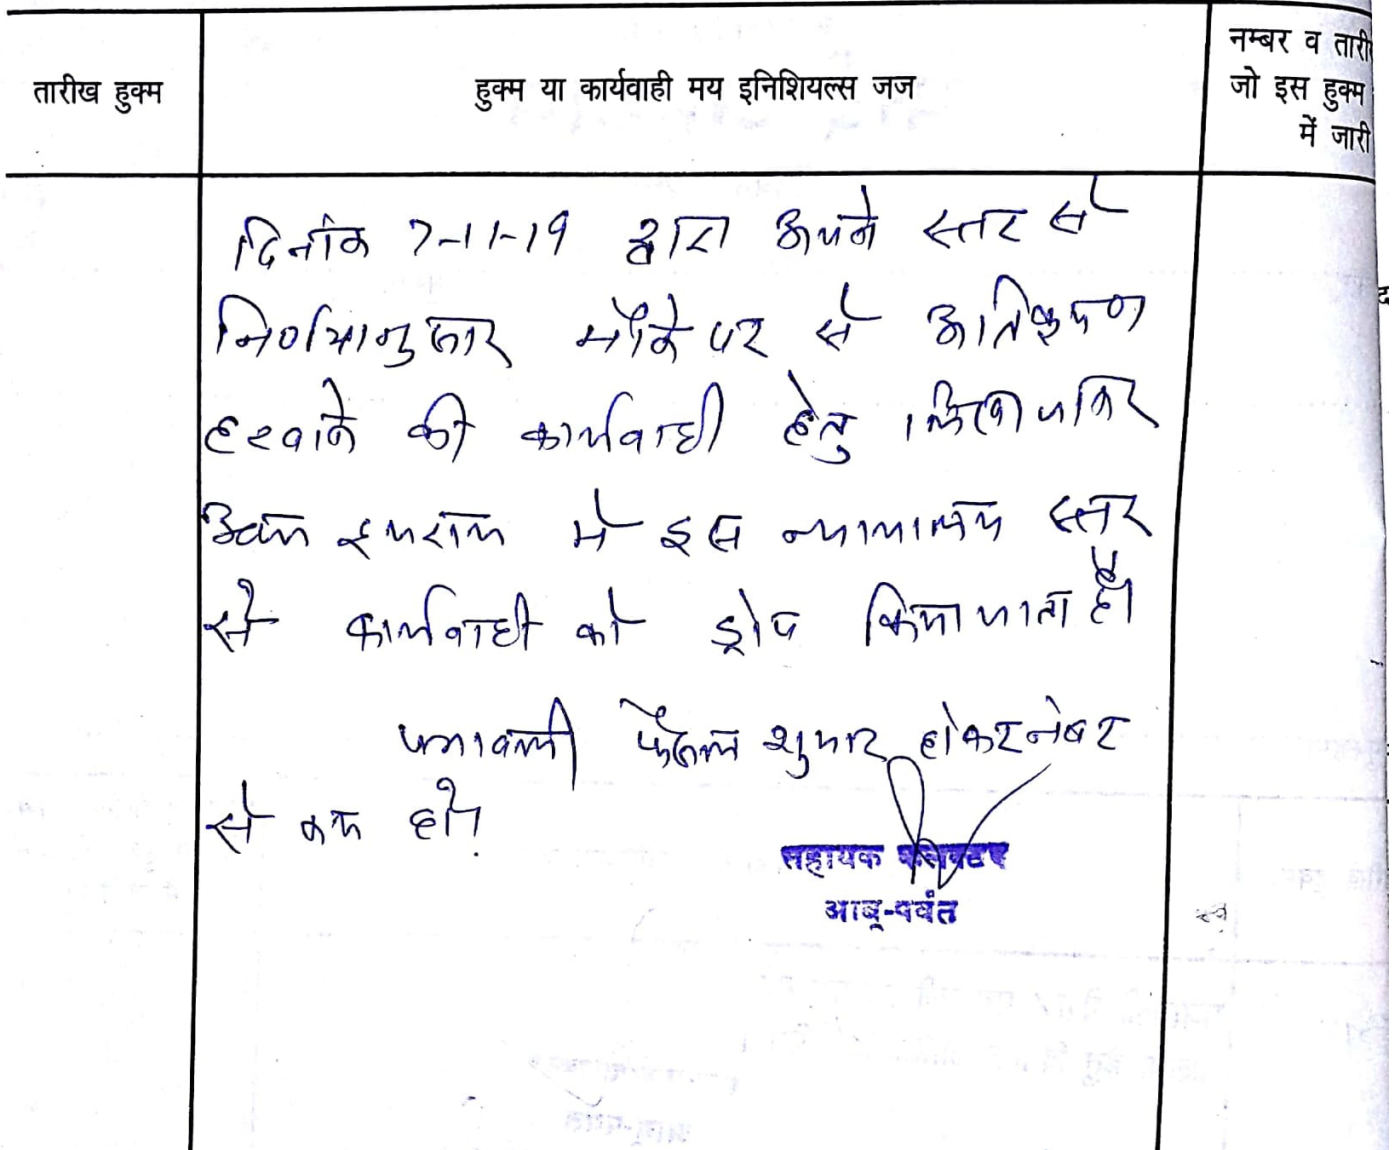 तारीख हुक्म
हुक्म या कार्यवाही मय इनिशियल्स जज
नम्बर व तारी
जो इस हुक्म
में जारी
दिनांक 7-11-19 द्वारा अपने स्तर से
निर्णयानुसार मौके पर से अतिक्रमण
हटवाने की कार्यवाही हेतु
उक्त में इस न्यायालय स्तर
से कार्यवाही को ड्रोप किया जाता है।
पत्रावली फैसल शुमार होकर नंबर
से कम हो।
सहायक कलक्टर
आबू-पर्वत